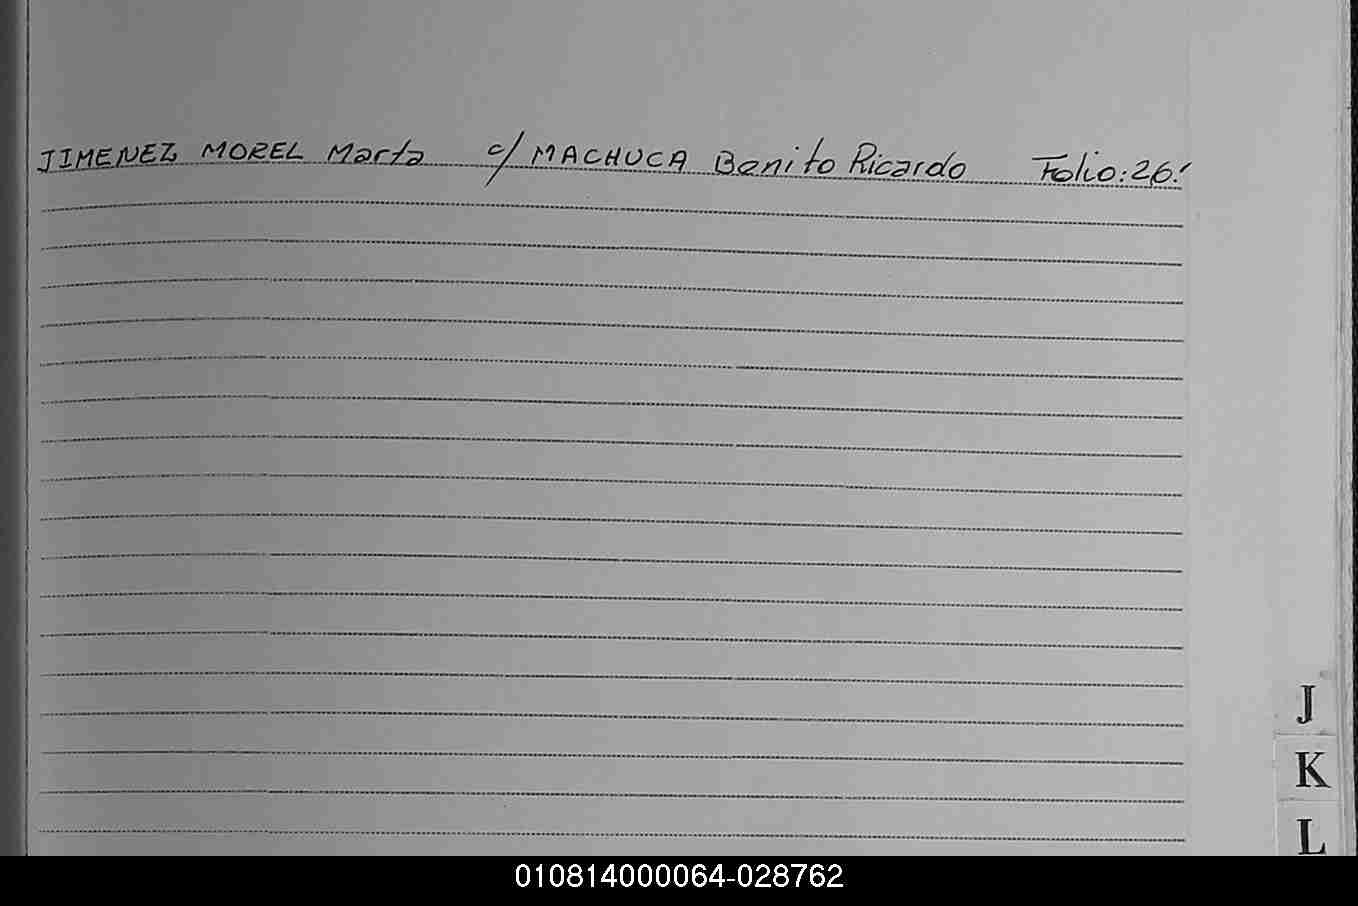 JIMENEZ MOREL Marta c/ MACHUCA Benito Ricardo Folio: 26.
J
K
L
010814000064-028762